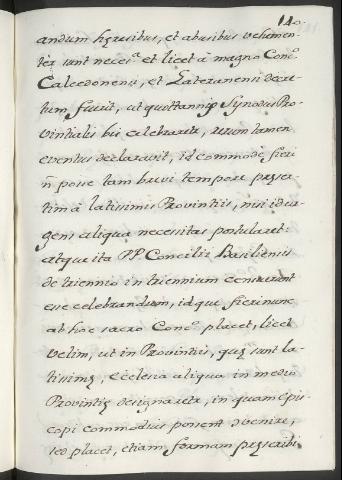 140
andum hęresibus, et abusibus vehemen-
ter sunt necesª et licet à magno Conc.º
Calcedonensi, et Lateranensi decre-
tum fuerit, ut quottannis Synodus Pro-
vintialis bis celebraretur, verum tamen
eventus declaravit, id commode fieri
ñ posse tam brevi tempore pręser-
tim à latissimis Provintiis, nisi id ur-
gens aliqua necessitas postularet:
atque ita PP Concilii Basiliensis
de triennio in triennium censuerunt
esse celebrandum, id que fieri nunc
ab hoc sacro Conc.º placet, licet
velim, ut in Provintiis, quę sunt la-
tissimę, Ecclesia aliqua in medio
Provintię designaretur, in quam Epis-
copi commodius possent convenire,
sed placet, etiam formam pręscribi